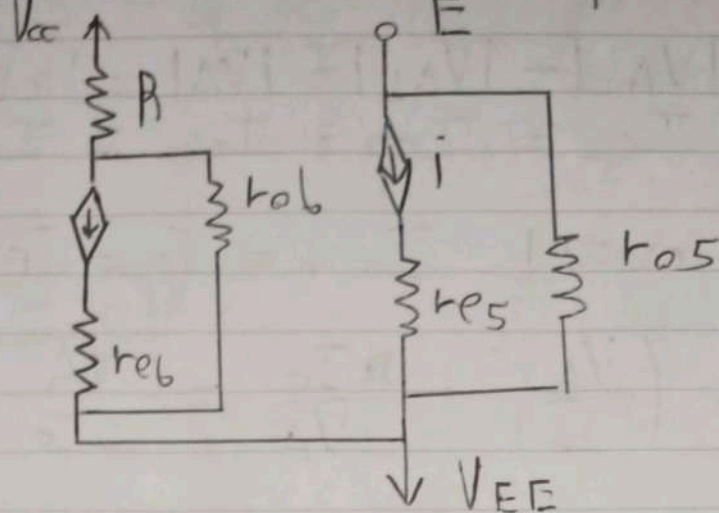 Vcc
E
R
ro6
i
ro5
re5
re6
VEE